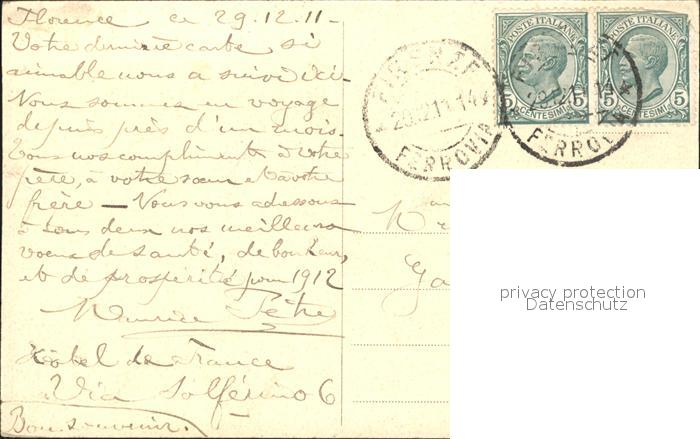 Florence ce 29.12.11-
Votre dernière carte si
aimable nous a suivi ici.
Nous sommes en voyage
depuis près d'un mois.
Tous nos compliments à votre
père, à votre sœur et à votre
frère – Nous vous adressons
à tous deux nos meilleurs
vœux de santé, de bonheur,
et de prospérité pour 1912
Maurice Pètre
Hôtel de France
Via Solférino 6
Bon souvenir.
POSTE ITALIANE
5 CENTESIMI 5
POSTE ITALIANE
5 CENTESIMI 5
FIRENZE
FERROVIA
FERROVIA
Ga
privacy protection
Datenschutz